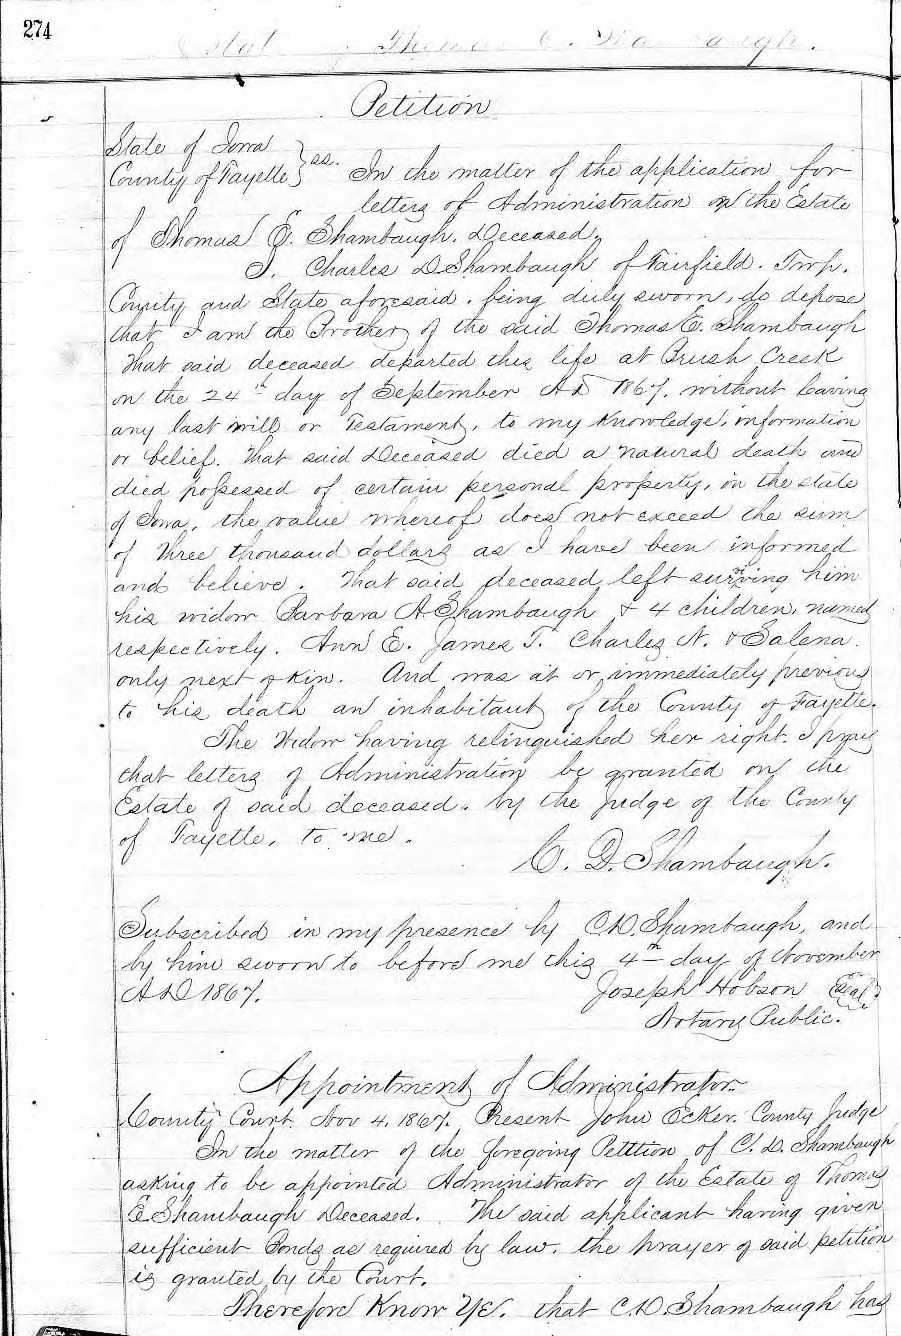 274
Petition
State of Iowa
County of Fayette } ss. In the matter of the application for
letters of Administration on the Estate
of Thomas E. Shambaugh. Deceased.
I. Charles D Shambaugh of Fairfield. Twp.
County and State aforesaid. being duly sworn, do depose
that I am the Brother of the said Thomas E. Shambaugh
That said deceased departed this life at Brush Creek
on the 24th day of September AD 1867. without leaving
any last will or Testament, to my Knowledge, information
or belief. That said Deceased died a natural death and
died possessed of certain personal property, in the state
of Iowa, the value whereof does not exceed the sum
of three thousand dollars as I have been informed
and believe. That said deceased left surviving him
his widow Barbara A. Shambaugh & 4 children, named
respectively. Ann E. James T. Charles N. & Salena.
only next of Kin. And was at or immediately previous
to his death an inhabitant of the County of Fayette.
The Widow having relinquished her right. I pray
that letters of Administration be granted on the
Estate of said deceased. by the Judge of the County
of Fayette, to me.
C. D. Shambaugh.
Subscribed in my presence by C.D. Shambaugh, and
by him sworn to before me this 4th day of November
AD 1867.
Joseph Hobson Seal
Notary Public.
Appointment of Administrator
County Court. Nov 4, 1867. Present John Ecker. County Judge
In the matter of the foregoing Petition of C. D. Shambaugh
asking to be appointed Administrator of the Estate of Thomas
E Shambaugh Deceased. The said applicant having given
sufficient Bonds as required by law. the prayer of said petition
is granted by the Court.
Therefore Know Ye. that C.D. Shambaugh has